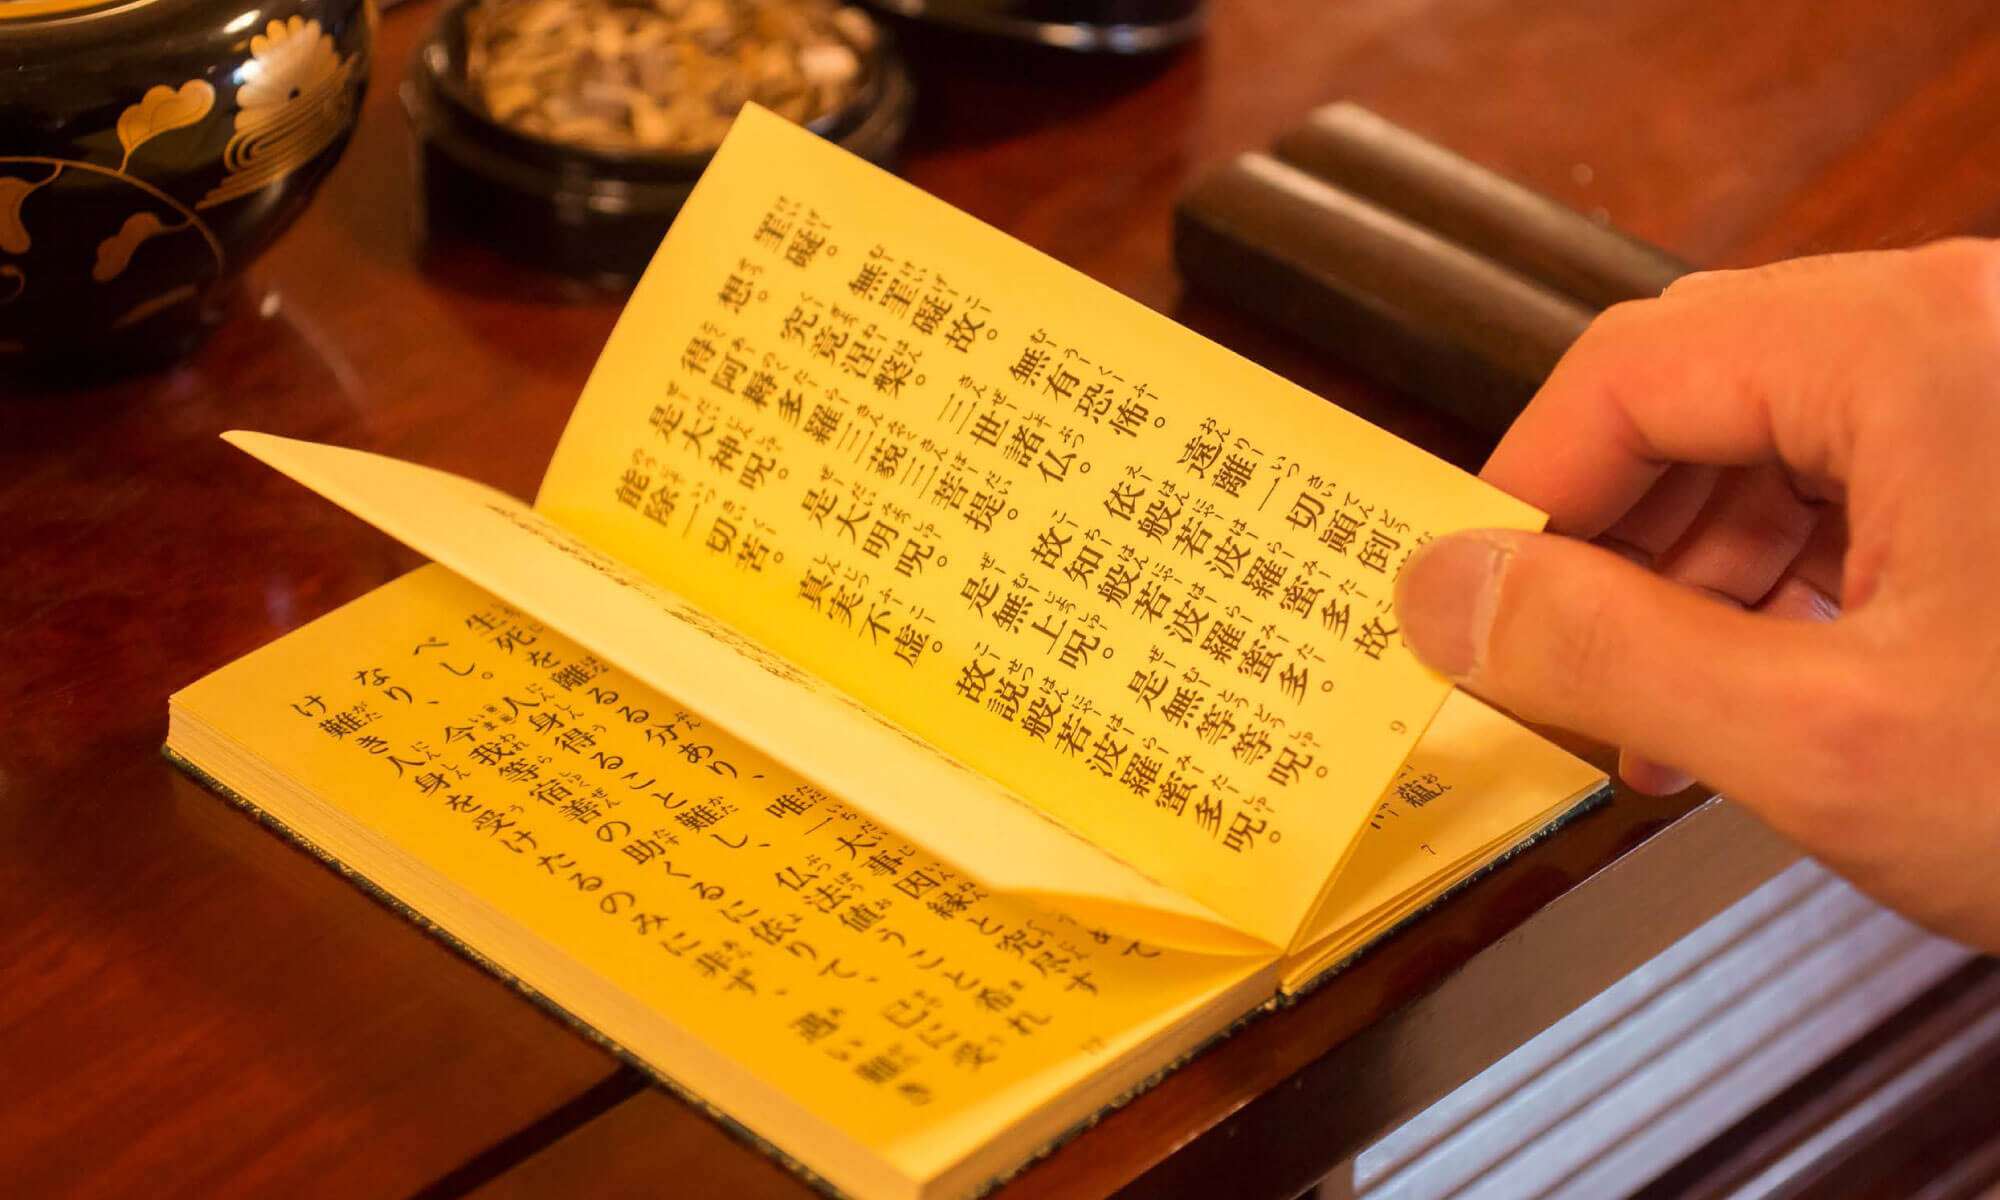 罣礙。無罣礙故。無有恐怖。遠離一切顛倒
想。究竟涅槃。三世諸仏。依般若波羅蜜多故
得阿耨多羅三藐三菩提。故知般若波羅蜜多。
是大神呪。是大明呪。是無上呪。是無等等呪。
能除一切苦。真実不虚。故説般若波羅蜜多呪。
9
蘊
7
て
生死を離るる分あり、唯一大事因縁と究尽す
べし。人身得ること難し、仏法値うこと希れ
なり、今我等宿善の助くるに依りて、已に受
け難き人身を受けたるのみに非ず、遇い難き
17